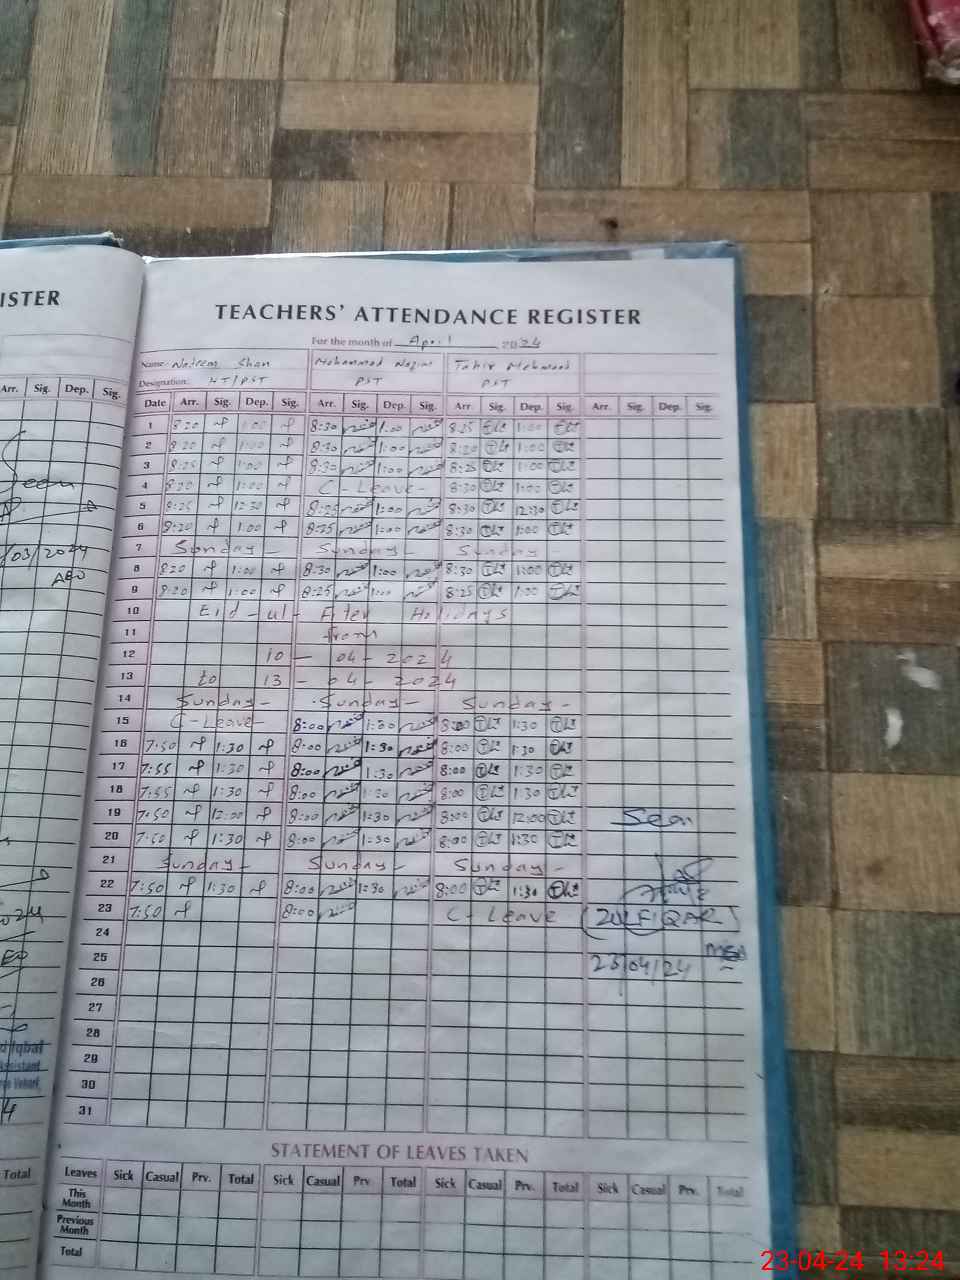 ISTER
Arr. Sig. Dep. Sig.
Seen
/03/2024
AEO
Total
TEACHERS' ATTENDANCE REGISTER
For the month of April 2024
Name: Shan Mohammad Tahir Mehmood
Designation: HT/PST PST PST
Date Arr. Sig. Dep. Sig. Arr. Sig. Dep. Sig. Arr. Sig. Dep. Sig. Arr. Sig. Dep. Sig.
1 8:20 1:00 8:30 1:00 8:25 1:00
2 8:20 1:00 8:30 1:00 8:30 1:00
3 8:25 1:00 8:30 1:00 8:25 1:00
4 8:20 1:00 C-Leave- 8:30 1:00
5 8:25 12:30 8:25 1:00 8:30 12:30
6 8:20 1:00 8:25 1:00 8:30 1:00
7 Sunday- Sunday- Sunday-
8 8:20 1:00 8:30 1:00 8:30 1:00
9 8:20 1:00 8:25 1:00 8:25 1:00
10 Eid-ul-Fiter Holidays
11 from
12 10-04-2024
13 to 13-04-2024
14 Sunday- Sunday- Sunday-
15 C-Leave- 8:00 1:30 8:00 1:30
16 7:50 1:30 8:00 1:30 8:00 1:30
17 7:55 1:30 8:00 1:30 8:00 1:30
18 7:55 1:30 8:00 1:30 8:00 1:30
19 7:50 12:00 8:00 1:30 8:00 12:00 Seen
20 7:50 1:30 8:00 1:30 8:00 1:30
21 Sunday- Sunday- Sunday-
22 7:50 1:30 8:00 1:30 8:00 1:30
23 7:50 8:00 C-Leave (ZULFIQAR)
24
25 23/04/24
26
27
28
29
30
31
STATEMENT OF LEAVES TAKEN
Leaves Sick Casual Prv. Total Sick Casual Prv. Total Sick Casual Prv. Total Sick Casual Prv. Total
This Month
Previous Month
Total
23-04-24 13:24